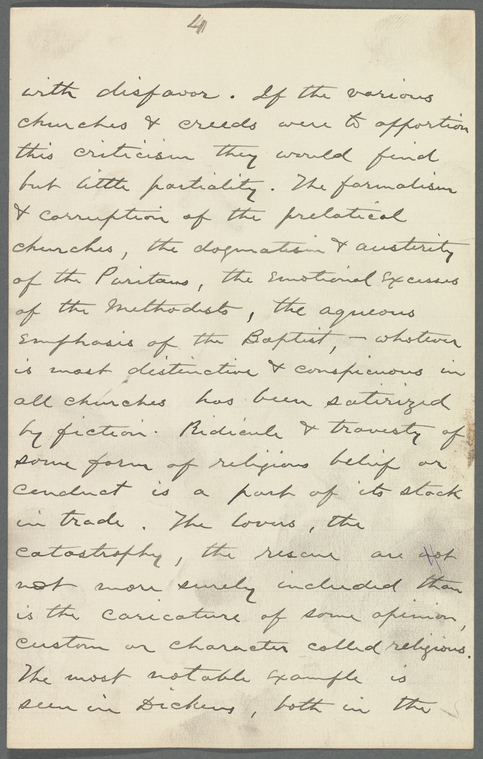 4
with disfavor. If the various
churches & creeds were to apportion
this criticism they would find
but little partiality. The formalism
& corruption of the prelatical
churches, the dogmatism & austerity
of the Puritans, the Emotional Excesses
of the Methodists, the aqueous
Emphasis of the Baptist, – whatever
is most distinctive & conspicuous in
all churches has been satirized
by fiction. Ridicule & travesty of
some form of religious belief or
conduct is a part of its stock
in trade. The lovers, the
catastrophy, the rescue are not
not more surely included than
is the caricature of some opinion,
custom or character called religious.
The most notable Example is
seen in Dickens, both in the